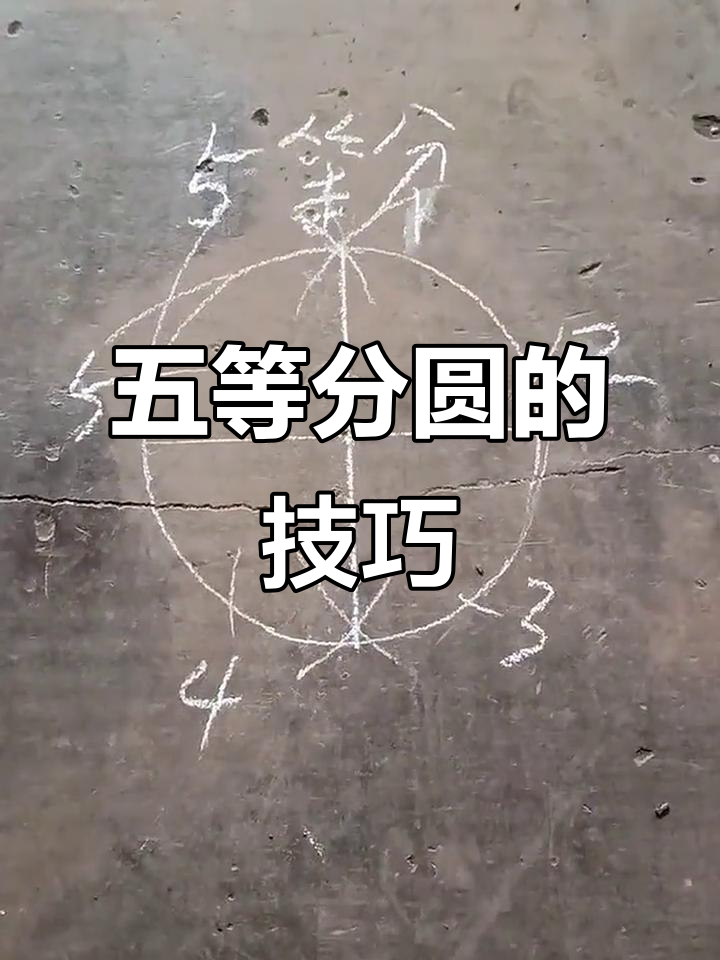 5等分
五等分圆的
技巧
5
2
3
4